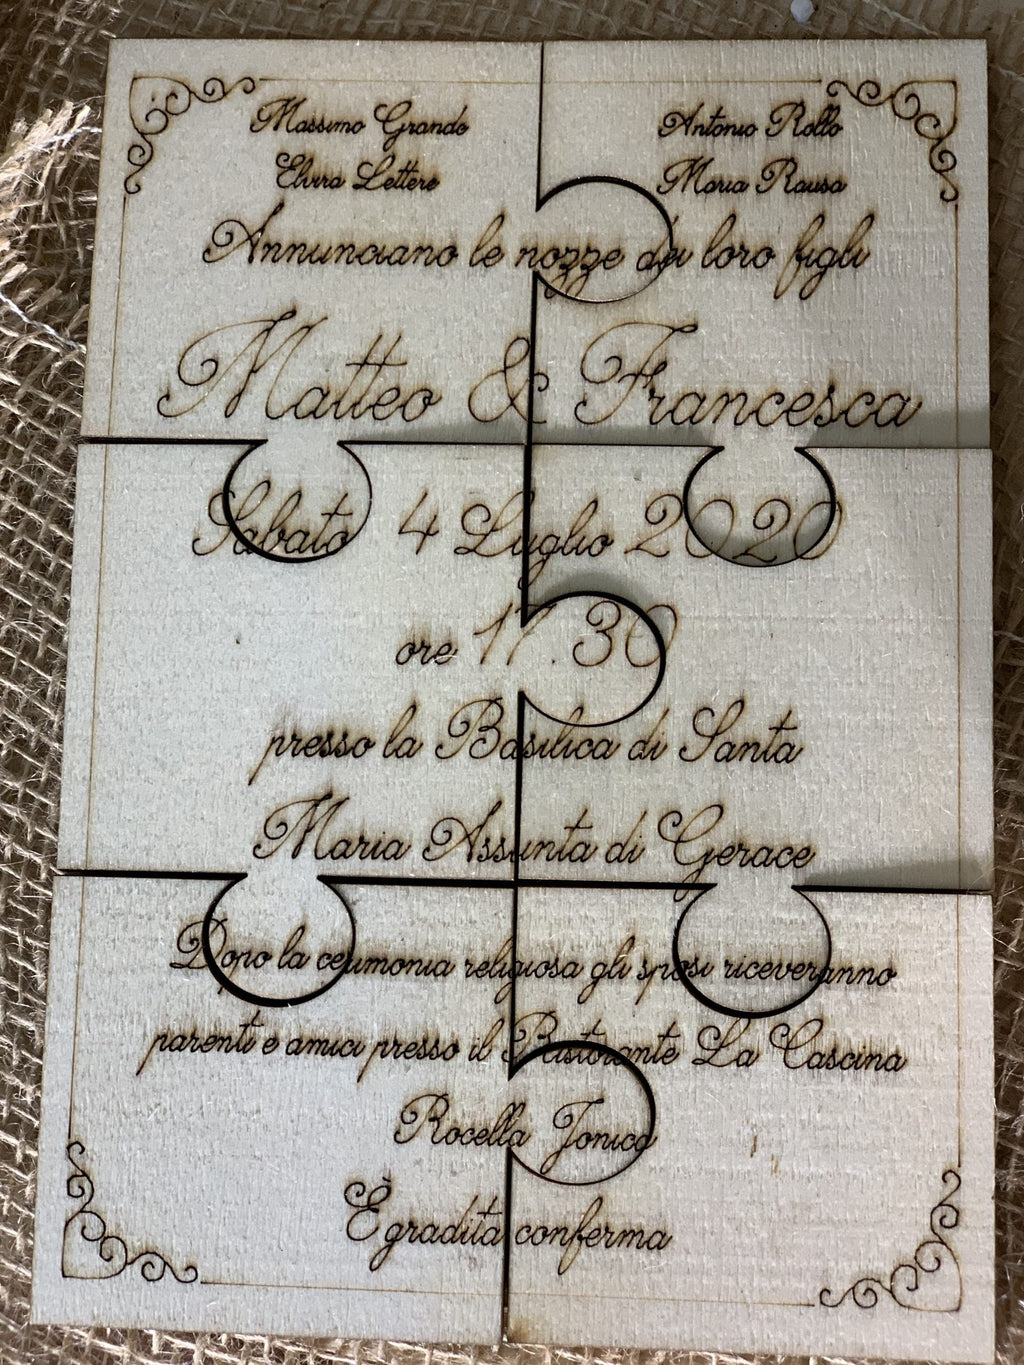 Massimo Grande
Elvira Lettere
Antonio Rollo
Maria Rausa
Annunciano le nozze dei loro figli
Matteo & Francesca
Sabato 4 Luglio 2020
ore 17.30
presso la Basilica di Santa
Maria Assunta di Gerace
Dopo la cerimonia religiosa gli sposi riceveranno
parenti e amici presso il Ristorante La Cascina
Rocella Jonica
È gradita conferma